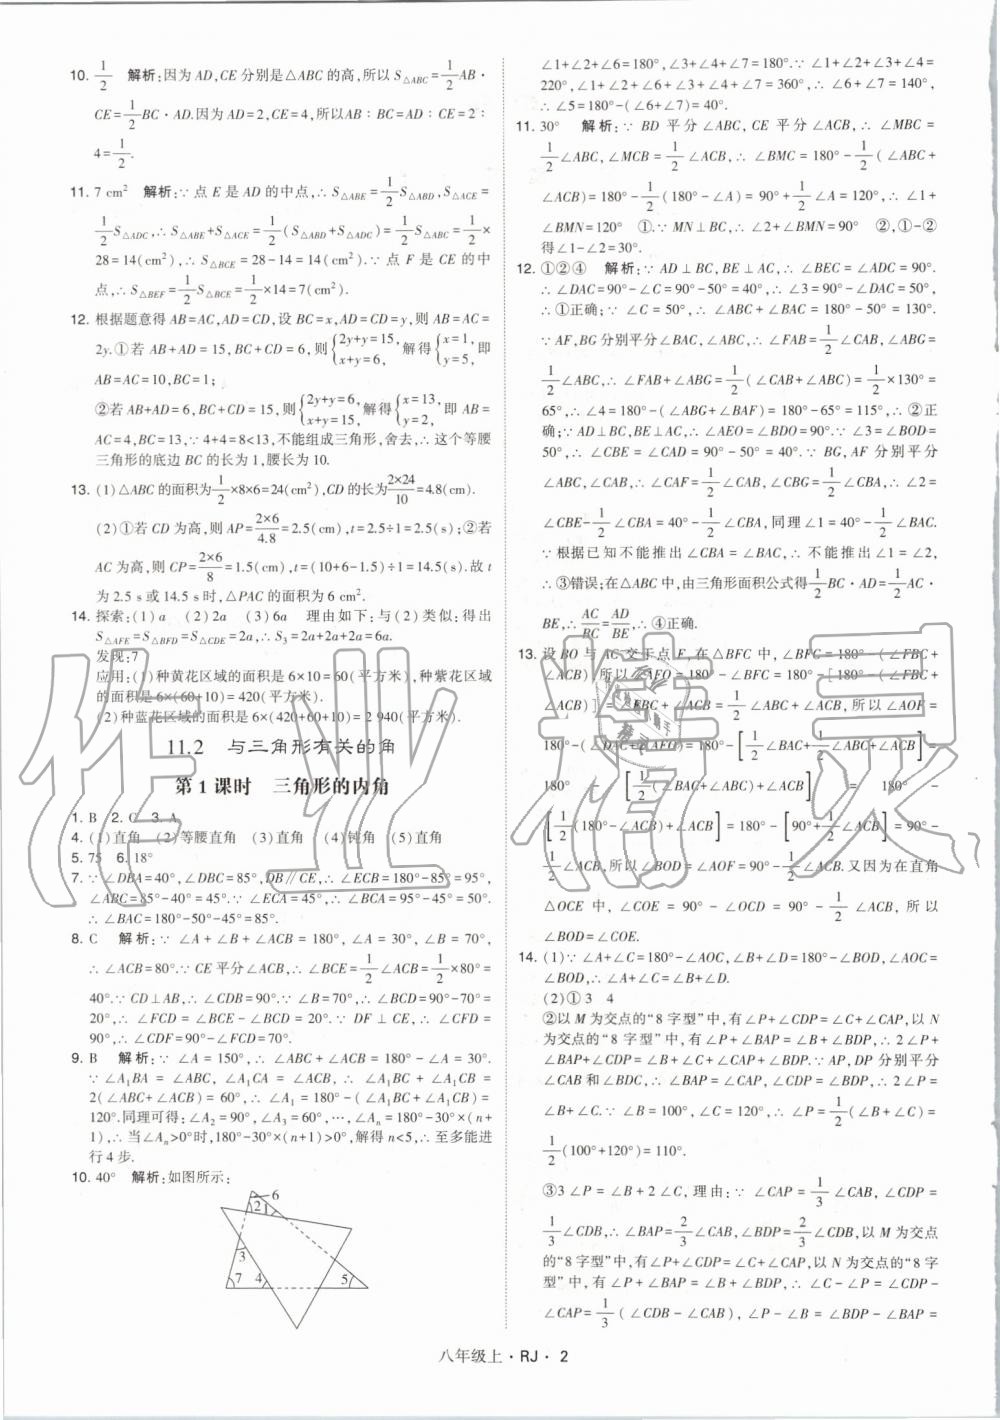 10. 1/2 解析:因为 AD,CE 分别是△ABC 的高,所以 S△ABC=1/2AB·
CE=1/2BC·AD.因为 AD=2,CE=4,所以AB∶BC=AD∶CE=2∶
4=1/2.
11. 7 cm² 解析:∵点 E 是 AD 的中点,∴S△ABE=1/2S△ABD,S△ACE=
1/2S△ADC,∴S△ABE+S△ACE=1/2(S△ABD+S△ADC)=1/2S△ABC=1/2×
28=14(cm²),∴S△BCE=28-14=14(cm²).∵点 F 是 CE 的中
点,∴S△BEF=1/2S△BCE=1/2×14=7(cm²).
12. 根据题意得 AB=AC,AD=CD,设 BC=x,AD=CD=y,则 AB=AC=
2y.①若 AB+AD=15,BC+CD=6,则{2y+y=15, x+y=6,解得{x=1, y=5,即
AB=AC=10,BC=1;
②若 AB+AD=6,BC+CD=15,则{2y+y=6, x+y=15,解得{x=13, y=2,即 AB=
AC=4,BC=13,∵4+4=8<13,不能组成三角形,舍去,∴这个等腰
三角形的底边 BC 的长为 1,腰长为 10.
13. (1)△ABC 的面积为1/2×8×6=24(cm²),CD 的长为2×24/10=4.8(cm).
(2)①若 CD 为高,则 AP=2×6/4.8=2.5(cm),t=2.5÷1=2.5(s);②若
AC 为高,则 CP=2×6/8=1.5(cm),t=(10+6-1.5)÷1=14.5(s).故 t
为 2.5 s 或 14.5 s 时,△PAC 的面积为 6 cm².
14. 探索:(1)a (2)2a (3)6a 理由如下:与(2)类似:得出
S△AFE=S△BFD=S△CDE=2a,∴S3=2a+2a+2a=6a.
发现:7
应用:(1)种黄花区域的面积是 6×10=60(平方米),种紫花区域
的面积是 6×(60+10)=420(平方米).
(2)种蓝花区域的面积是 6×(420+60+10)=2 940(平方米).
11.2 与三角形有关的角
第1课时 三角形的内角
1. B 2. C 3. A
4. (1)直角 (2)等腰直角 (3)直角 (4)钝角 (5)直角
5. 75 6. 18°
7. ∵∠DBA=40°,∠DBC=85°,DB∥CE,∴∠ECB=180°-85°=95°,
∠ABC=85°-40°=45°.∵∠ECA=45°,∴∠BCA=95°-45°=50°.
∴∠BAC=180°-50°-45°=85°.
8. C 解析:∵∠A+∠B+∠ACB=180°,∠A=30°,∠B=70°,
∴∠ACB=80°.∵CE平分∠ACB,∴∠BCE=1/2∠ACB=1/2×80°=
40°.∵CD⊥AB,∴∠CDB=90°.∵∠B=70°,∴∠BCD=90°-70°=
20°,∴∠FCD=∠BCE-∠BCD=20°.∵DF⊥CE,∴∠CFD=
90°,∴∠CDF=90°-∠FCD=70°.
9. B 解析:∵∠A=150°,∴∠ABC+∠ACB=180°-∠A=30°.
∵∠A₁BA=∠ABC,∠A₁CA=∠ACB,∴∠A₁BC+∠A₁CB=
2(∠ABC+∠ACB)=60°,∴∠A₁=180°-(∠A₁BC+∠A₁CB)=
120°.同理可得:∠A₂=90°,∠A₃=60°,…,∠Aₙ=180°-30°×(n+
1),∴当∠Aₙ>0°时,180°-30°×(n+1)>0°,解得 n<5,∴至多能进
行 4 步.
10. 40° 解析:如图所示:
6
2 1
3
7 4 5
∠1+∠2+∠6=180°,∠3+∠4+∠7=180°.∵∠1+∠2+∠3+∠4=
220°,∠1+∠2+∠6+∠3+∠4+∠7=360°,∴∠6+∠7=140°,
∴∠5=180°-(∠6+∠7)=40°.
11. 30° 解析:∵BD 平分∠ABC,CE 平分∠ACB,∴∠MBC=
1/2∠ABC,∠MCB=1/2∠ACB,∴∠BMC=180°-1/2(∠ABC+
∠ACB)=180°-1/2(180°-∠A)=90°+1/2∠A=120°,∴∠1+
∠BMN=120° ①.∵MN⊥BC,∴∠2+∠BMN=90° ②,①-②
得∠1-∠2=30°.
12. ①②④ 解析:∵AD⊥BC,BE⊥AC,∴∠BEC=∠ADC=90°.
∴∠DAC=90°-∠C=90°-50°=40°,∴∠3=90°-∠DAC=50°,
∴①正确;∵∠C=50°,∴∠ABC+∠BAC=180°-50°=130°.
∵AF,BG分别平分∠BAC,∠ABC,∴∠FAB=1/2∠CAB,∠ABG=
1/2∠ABC,∴∠FAB+∠ABG=1/2(∠CAB+∠ABC)=1/2×130°=
65°,∴∠4=180°-(∠ABG+∠BAF)=180°-65°=115°,∴②正
确;∵AD⊥BC,BE⊥AC,∴∠AEO=∠BDO=90°.∵∠3=∠BOD=
50°,∴∠CBE=∠CAD=90°-50°=40°.∵BG,AF 分别平分
∠ABC,∠CAB,∴∠CAF=1/2∠CAB,∠CBG=1/2∠CBA,∴∠2=
∠CBE-1/2∠CBA=40°-1/2∠CBA,同理∠1=40°-1/2∠BAC.
∵根据已知不能推出∠CBA=∠BAC,∴不能推出∠1=∠2,
∴③错误;在△ABC 中,由三角形面积公式得1/2BC·AD=1/2AC·
BE,∴AC/BC=AD/BE,∴④正确.
13. 设 BO 与 AC 交于点 F,在△BFC 中,∠BFC=180°-(∠FBC+
∠ACB),所以∠AFO=180°-∠BFC=180°-[180°-(∠FBC+
∠ACB)]=∠FBC+∠ACB=1/2∠ABC+∠ACB,所以∠AOF=
180°-(∠OAC+∠AFO)=180°-[1/2∠BAC+1/2∠ABC+∠ACB]
=180°-[1/2(∠BAC+∠ABC)+∠ACB]=180°-
[1/2(180°-∠ACB)+∠ACB]=180°-[90°+1/2∠ACB]=90°-
1/2∠ACB,所以∠BOD=∠AOF=90°-1/2∠ACB.又因为在直角
△OCE 中,∠COE=90°-∠OCD=90°-1/2∠ACB,所以
∠BOD=∠COE.
14. (1)∵∠A+∠C=180°-∠AOC,∠B+∠D=180°-∠BOD,∠AOC=
∠BOD,∴∠A+∠C=∠B+∠D.
(2)①3 4
②以 M 为交点的“8 字型”中,有∠P+∠CDP=∠C+∠CAP,以 N
为交点的“8 字型”中,有∠P+∠BAP=∠B+∠BDP,∴2∠P+
∠BAP+∠CDP=∠B+∠C+∠CAP+∠BDP.∵AP,DP 分别平分
∠CAB和∠BDC,∴∠BAP=∠CAP,∠CDP=∠BDP,∴2∠P=
∠B+∠C.∵∠B=100°,∠C=120°,∴∠P=1/2(∠B+∠C)=
1/2(100°+120°)=110°.
③3∠P=∠B+2∠C,理由:∵∠CAP=1/3∠CAB,∠CDP=
1/3∠CDB,∴∠BAP=2/3∠CAB,∠BDP=2/3∠CDB,以 M 为交点
的“8字型”中,有∠P+∠CDP=∠C+∠CAP,以 N 为交点的“8 字
型”中,有∠P+∠BAP=∠B+∠BDP,∴∠C-∠P=∠CDP-
∠CAP=1/3(∠CDB-∠CAB),∠P-∠B=∠BDP-∠BAP=
八年级上·RJ·2
作业精灵